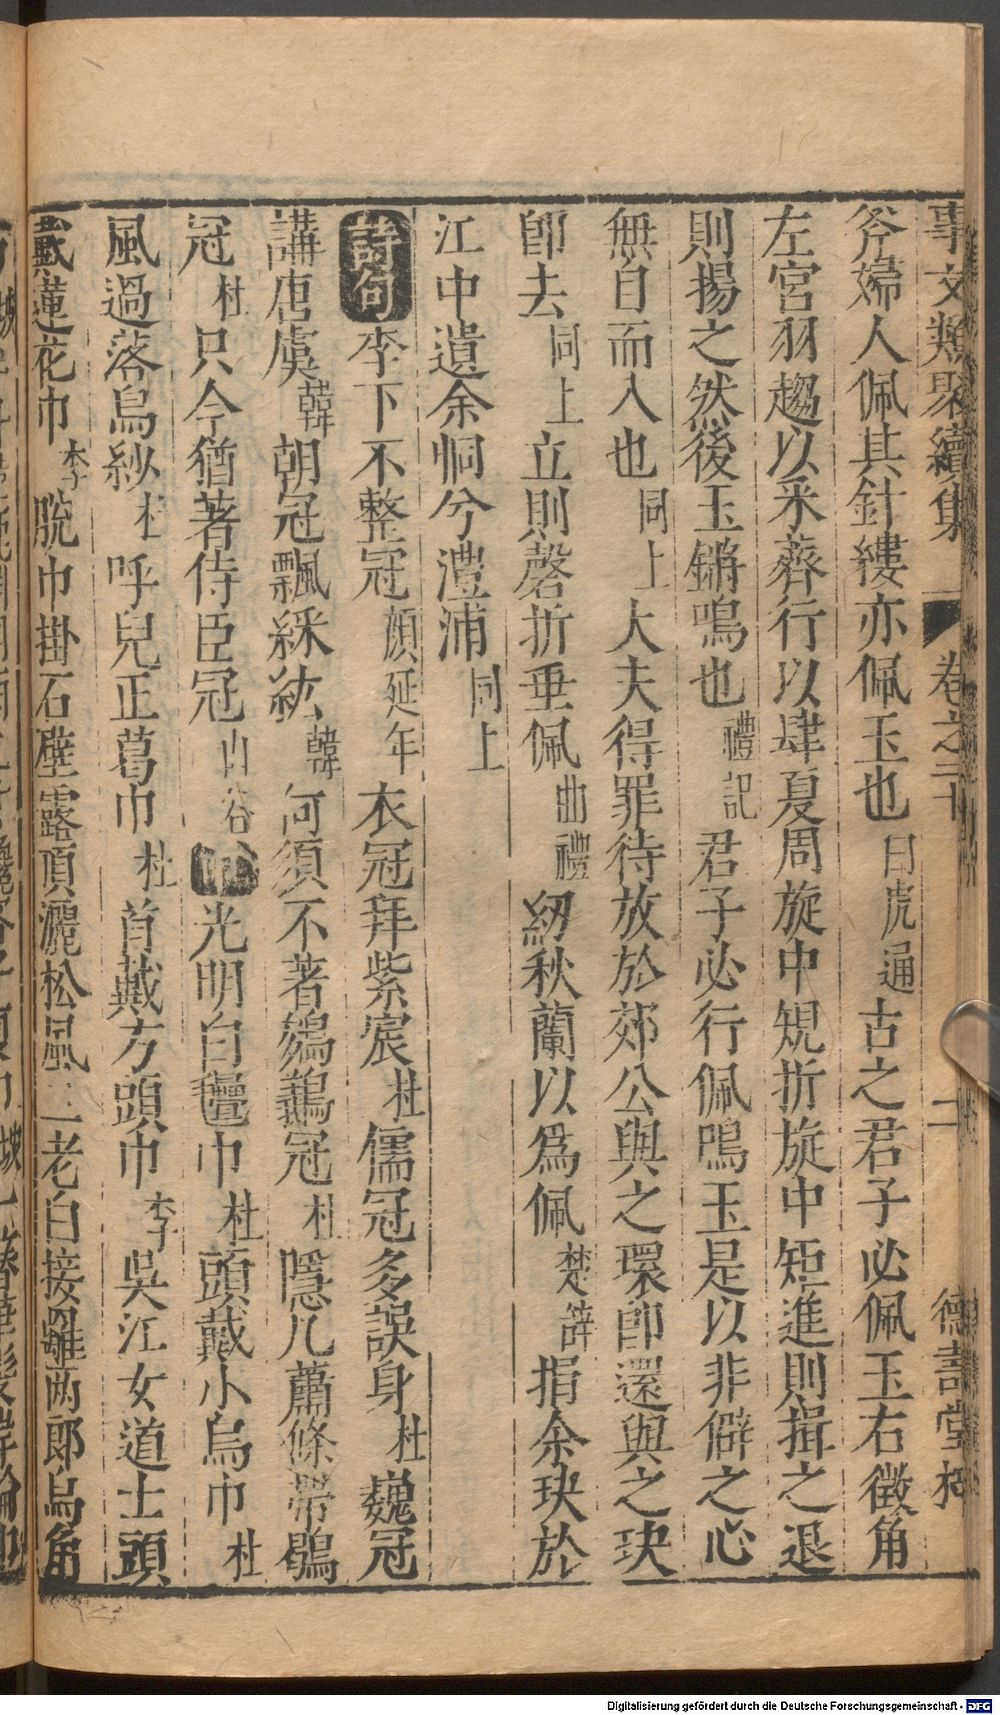 事文類聚續集 卷之二十 二 德壽堂梓
斧婦人佩其針縷亦佩玉也白虎通古之君子必佩玉右徵角
左宮羽趨以采薺行以肆夏周旋中規折旋中矩進則揖之退
則揚之然後玉鏘鳴也禮記君子必行佩鳴玉是以非僻之心
無自而入也同上大夫得罪待放於郊公與之環卽還與之玦
卽去同上立則磬折垂佩曲禮紉秋蘭以爲佩楚辭捐余玦於
江中遺余恫兮澧浦同上
詩句李下不整冠顔延年衣冠拜紫宸杜儒冠多誤身杜巍冠
講唐虞韓朝冠飄綵紘韓何須不著鷄鶿冠杜隱几蕭條帶鶡
冠杜只今猶著侍臣冠山谷巾光明白氎巾杜頭戴小烏巾杜
風過落烏紗杜呼兒正葛巾杜首戴方頭巾李吳江女道士頭
戴蓮花巾李脫巾掛石壁露頂灑松風二老白接䍦两郎烏角